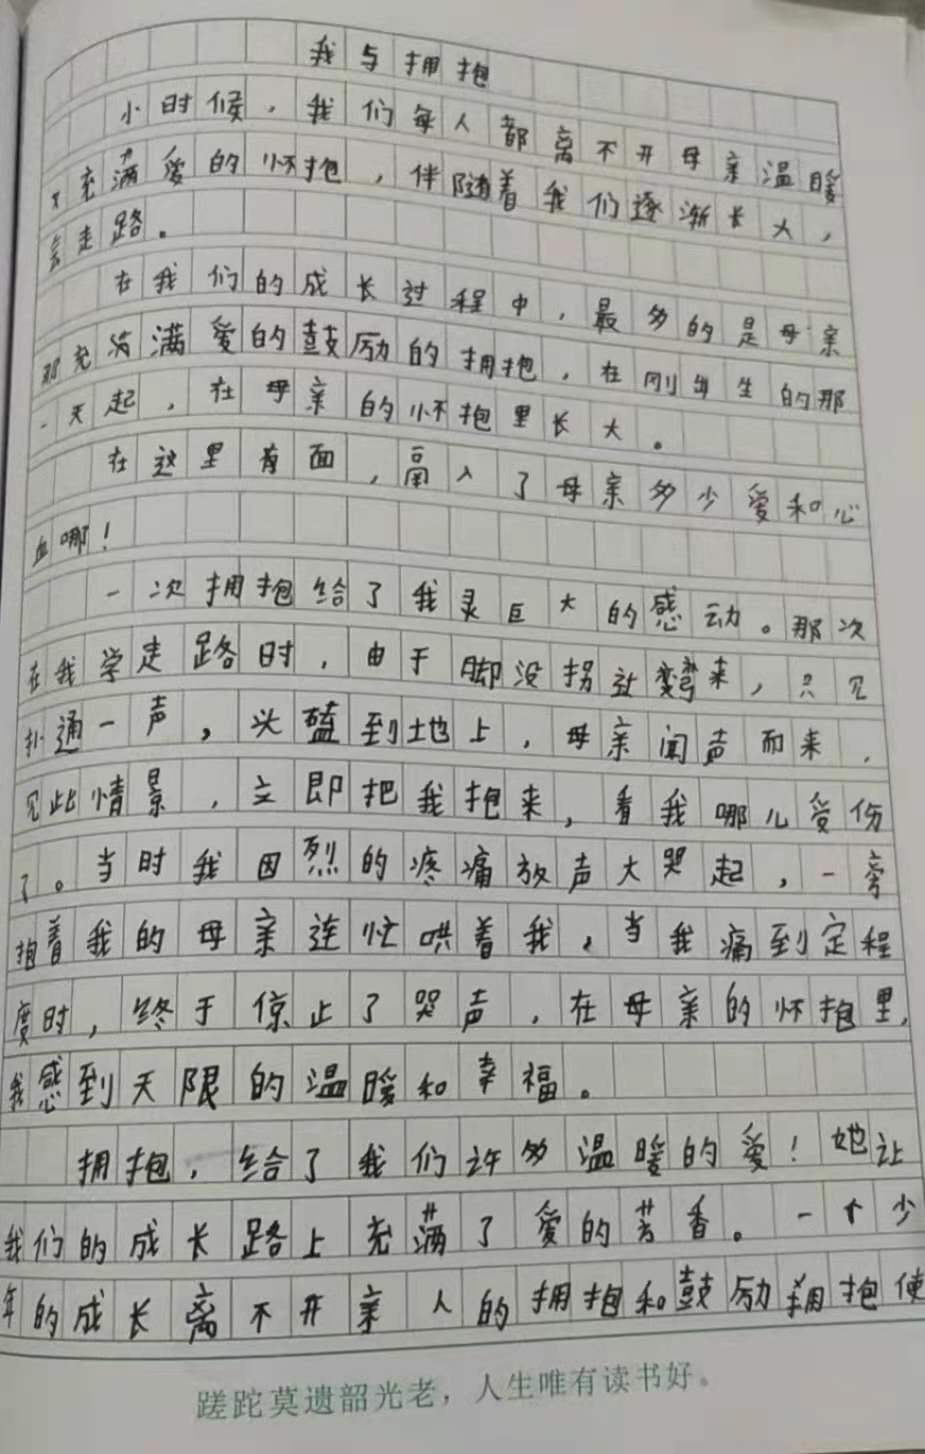 我与拥抱
小时候，我们每人都离不开母亲温暖
又充满爱的怀抱，伴随着我们逐渐长大，
会走路。
在我们的成长过程中，最多的是母亲
那充满满爱的鼓励的拥抱，在刚出生的那
一天起，在母亲的怀抱里长大。
在这里有面，入了母亲多少爱和心
血哪！
一次拥抱给了我灵巨大的感动。那次
在我学走路时，由于脚没拐过弯来，只见
扑通一声，头磕到地上，母亲闻声而来，
见此情景，立即把我抱来，看我哪儿受伤
了。当时我因烈的疼痛放声大哭起，一旁
抱着我的母亲连忙哄着我，当我痛到定程
度时，终于停止了哭声，在母亲的怀抱里，
我感到无限的温暖和幸福。
拥抱，给了我们许多温暖的爱！她让
我们的成长路上充满了爱的芳香。一个少
年的成长离不开亲人的拥抱和鼓励拥抱使
蹉跎莫遗韶光老，人生唯有读书好。